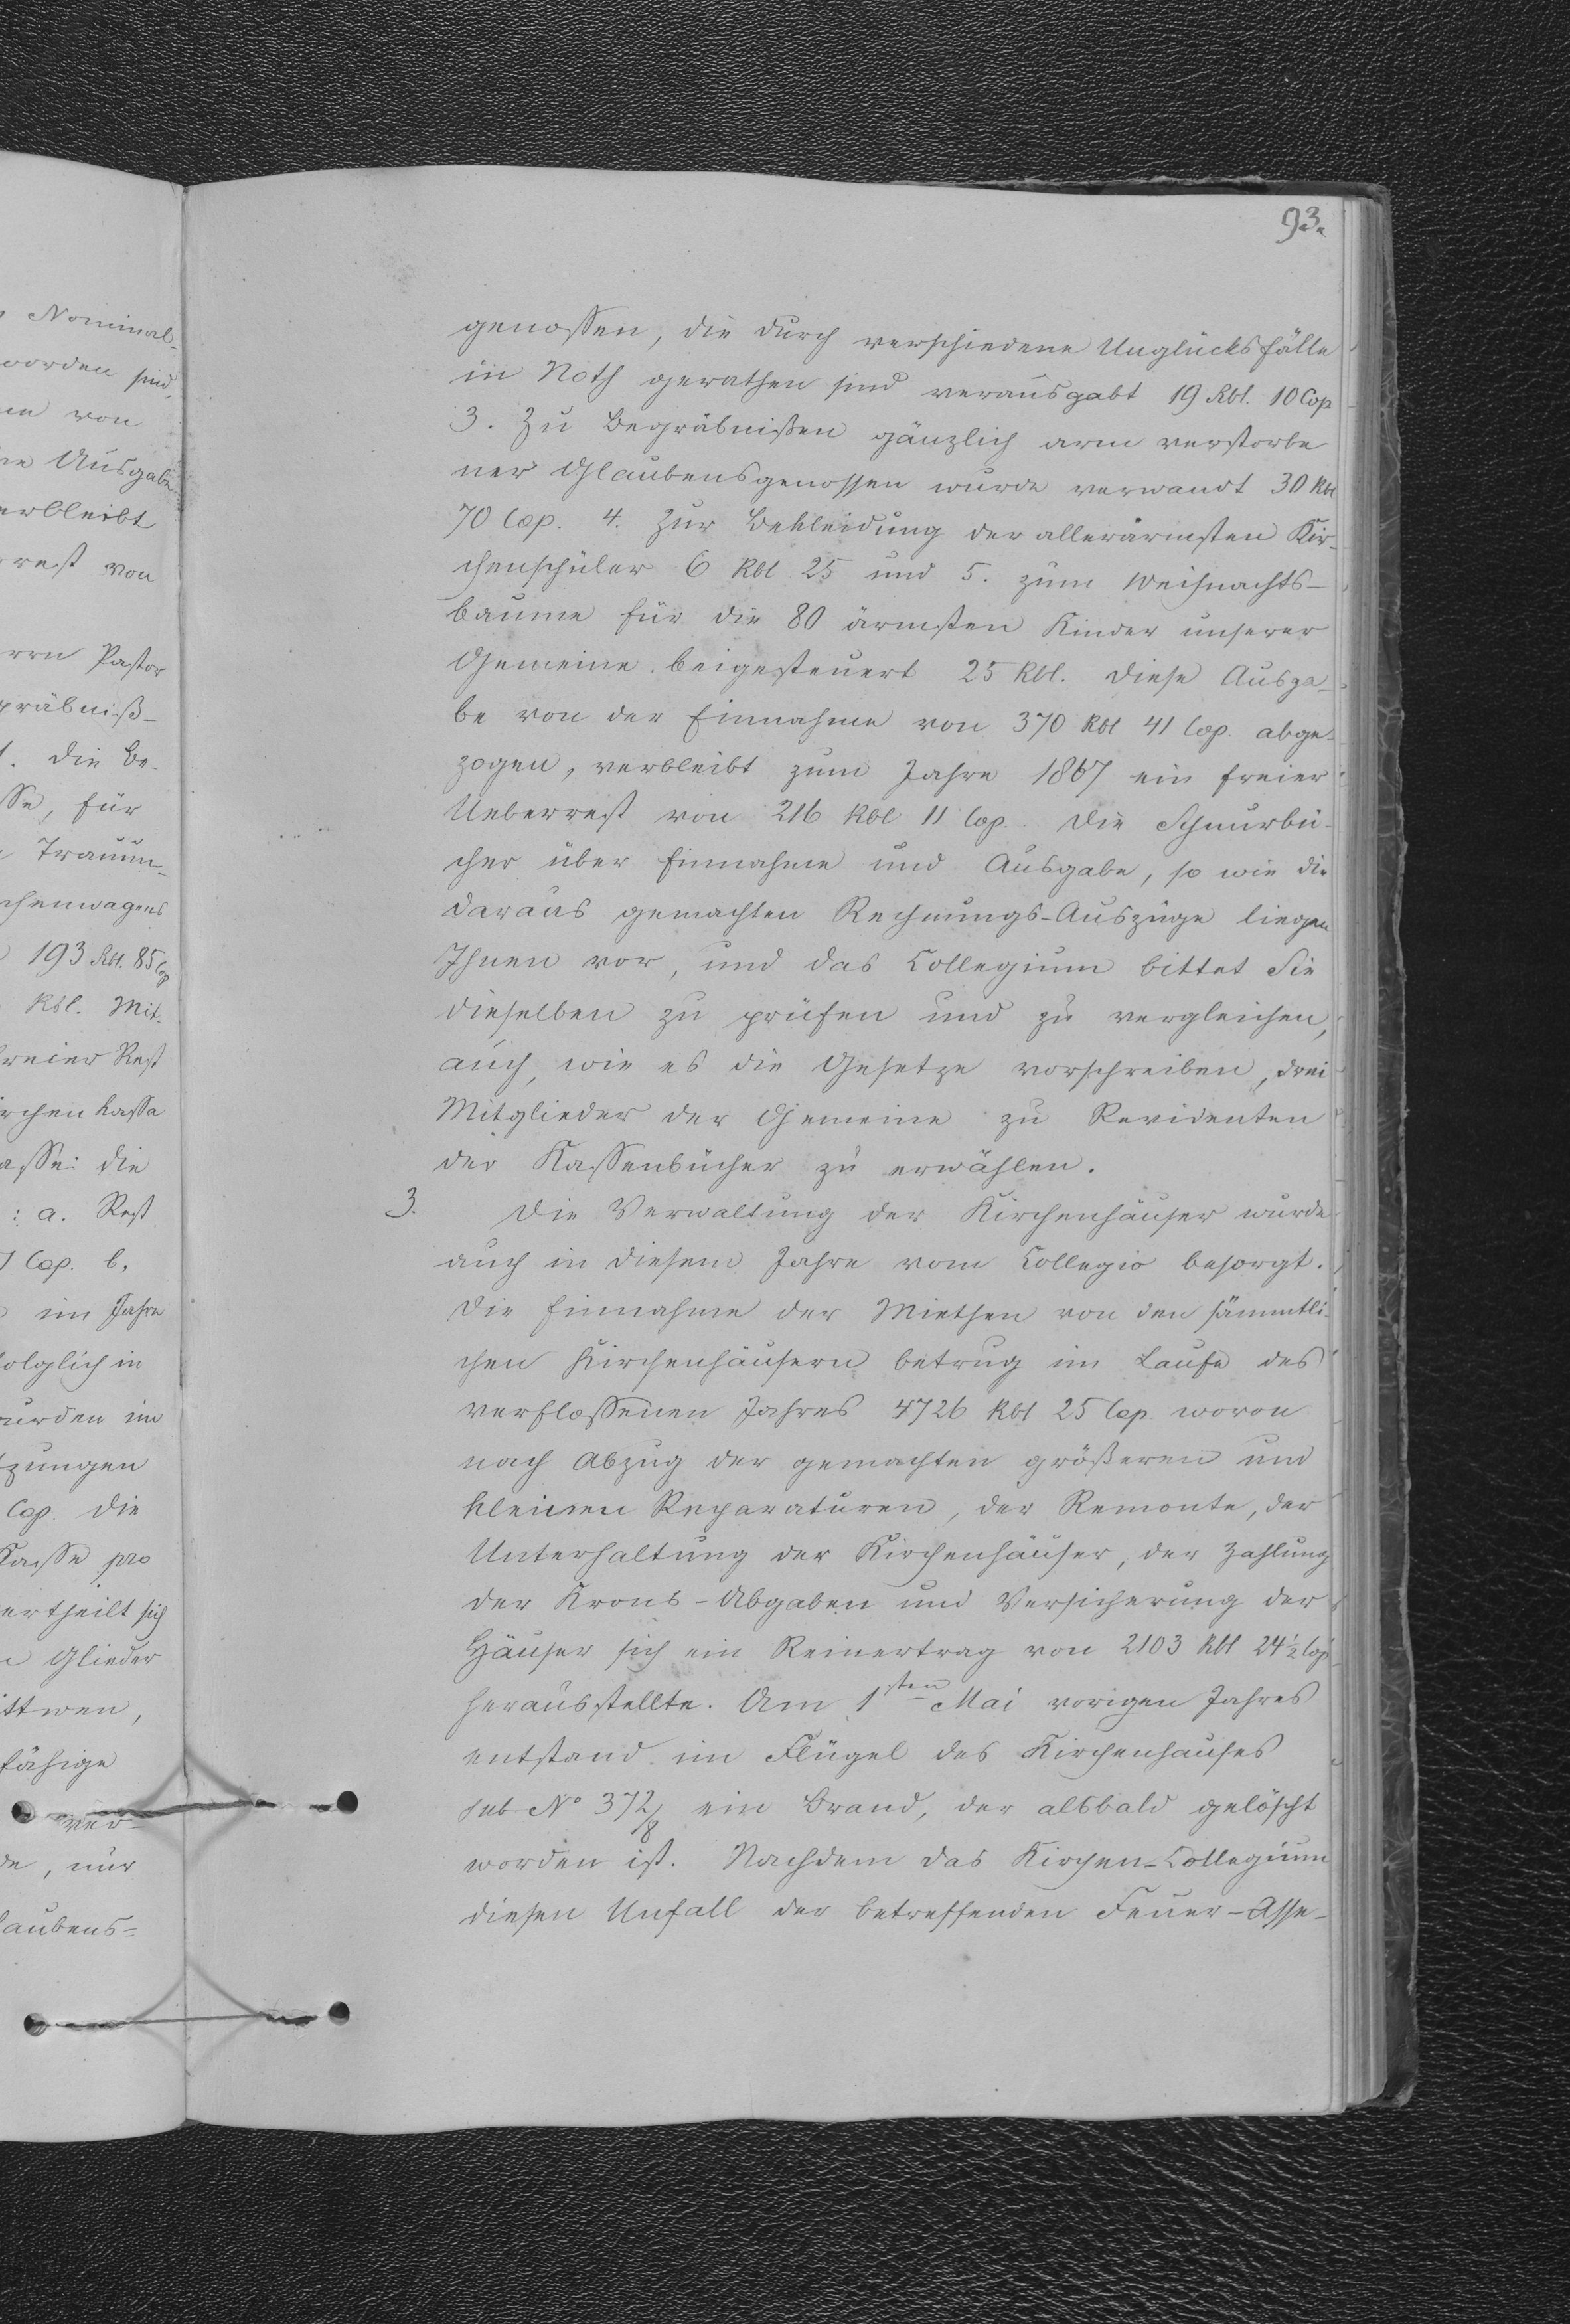 93.
genossen, die durch verschiedene Unglücksfälle
in Noth gerathen sind verausgabt 19 Rbl. 10 Cop
3. Zu Begräbnißen gänzlich arm verstorbe
ner Glaubensgenossen wurde verwandt 30 Rbl
70 Cop. 4. Zur Bekleidung der allerärmsten Kir-
chenschüler 6 Rbl 25 und 5. zum Weihnachts-
baume für die 80 ärmsten Kinder unserer
Gemeine beigesteuert 25 Rbl. Diese Ausga-
be von der Einnahme von 370 Rbl 41 Cop. abge-
zogen, verbleibt zum Jahre 1867 ein freier
Ueberrest von 216 Rbl 11 Cop. Die Schnurbü-
cher über Einnahme und Ausgabe, so wie die
daraus gemachten Rechnungs-Auszüge liegen
Ihnen vor, und das Collegium bittet Sie
dieselben zu prüfen und zu vergleichen,
auch, wie es die Gesetze vorschreiben, drei
Mitglieder der Gemeine zu Revidenten
der Kassenbücher zu erwählen.
3. Die Verwaltung der Kirchenhäuser wurde
auch in diesem Jahre vom Collegio besorgt.
Die Einnahme der Miethen von den sämmtli-
chen Kirchenhäusern betrug im Laufe des
verflossenen Jahres 4726 Rbl 25 Cop wovon
nach Abzug der gemachten größeren und
kleinen Reparaturen, der Remonte, der
Unterhaltung der Kirchenhäuser, der Zahlung
der Krons-Abgaben und Versicherung der
Häuser sich ein Reinertrag von 2103 Rbl 24 1/2 Cop
herausstellte. Am 1sten Mai vorigen Jahres
entstand im Flügel des Kirchenhauses
sub No 372/8 ein Brand, der alsbald gelöscht
worden ist. Nachdem das Kirchen-Collegium
diesen Unfall der betreffenden Feuer-Asse-